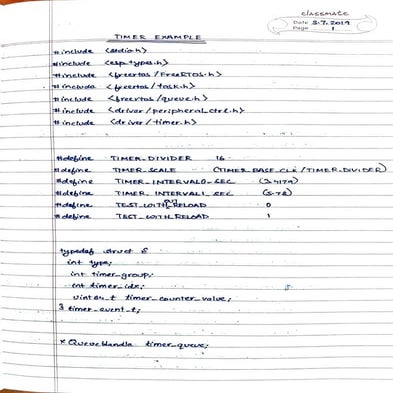 classmate
Date 3.7.2019
Page 1
TIMER EXAMPLE
#include <stdio.h>
#include <esp_types.h>
#include <freertos/FreeRTOS.h>
#include <freertos/task.h>
#include <freertos/queue.h>
#include <driver/peripheral_ctrl.h>
#include <driver/timer.h>
#define TIMER_DIVIDER 16
#define TIMER_SCALE (TIMER_BASE_CLK/TIMER_DIVIDER)
#define TIMER_INTERVAL0_SEC (3.4179)
#define TIMER_INTERVAL1_SEC (5.78)
#define TEST_WITHOUT_RELOAD 0
#define TEST_WITH_RELOAD 1
typedef struct {
int type;
int timer_group;
int timer_idx;
uint64_t timer_counter_value;
} timer_event_t;
xQueueHandle timer_queue;